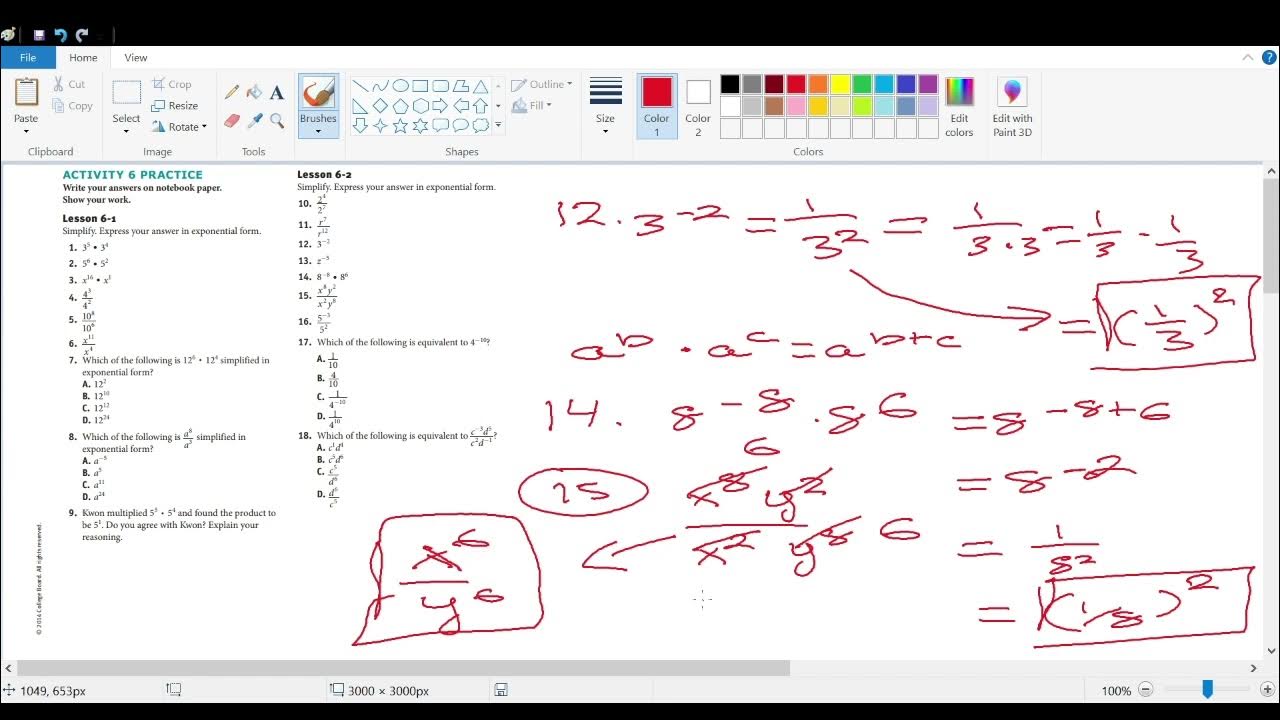 File
Home
View
Paste
Cut
Copy
Clipboard
Select
Crop
Resize
Rotate
Image
A
Tools
Brushes
Shapes
Outline
Fill
Size
Color 1
Color 2
Colors
Edit colors
Edit with Paint 3D
ACTIVITY 6 PRACTICE
Write your answers on notebook paper.
Show your work.
Lesson 6-1
Simplify. Express your answer in exponential form.
1. 3⁵ • 3⁴
2. 5⁶ • 5²
3. x¹⁶ • x¹
4. 4³/4²
5. 10⁸/10⁶
6. x¹¹/x⁴
7. Which of the following is 12⁶ • 12⁴ simplified in
exponential form?
A. 12²
B. 12¹⁰
C. 12¹²
D. 12²⁴
8. Which of the following is a⁸/a³ simplified in
exponential form?
A. a⁻⁵
B. a⁵
C. a¹¹
D. a²⁴
9. Kwon multiplied 5³ • 5⁴ and found the product to
be 5¹. Do you agree with Kwon? Explain your
reasoning.
© 2014 College Board. All rights reserved.
Lesson 6-2
Simplify. Express your answer in exponential form.
10. 2⁴/2⁷
11. r⁷/r¹²
12. 3⁻²
13. z⁻⁵
14. 8⁻⁸ • 8⁶
15. x⁸y²/x²y⁸
16. 5⁻³/5²
17. Which of the following is equivalent to 4⁻¹⁰?
A. 1/10
B. 4/10
C. 1/4⁻¹⁰
D. 1/4¹⁰
18. Which of the following is equivalent to c⁻³d⁵/c²d⁻¹?
A. c¹d⁴
B. c⁵d⁶
C. c⁵/d⁶
D. d⁶/c⁵
12. 3⁻² = 1/3² = 1/3·3 = 1/3 · 1/3
= (1/3)²
aᵇ · aᶜ = aᵇ⁺ᶜ
14. 8⁻⁸ · 8⁶ = 8⁻⁸⁺⁶
= 8⁻²
= 1/8²
= (1/8)²
15
6
x⁸ y²/x² y⁸ 6
x⁶/y⁶
1049, 653px
3000 × 3000px
100%